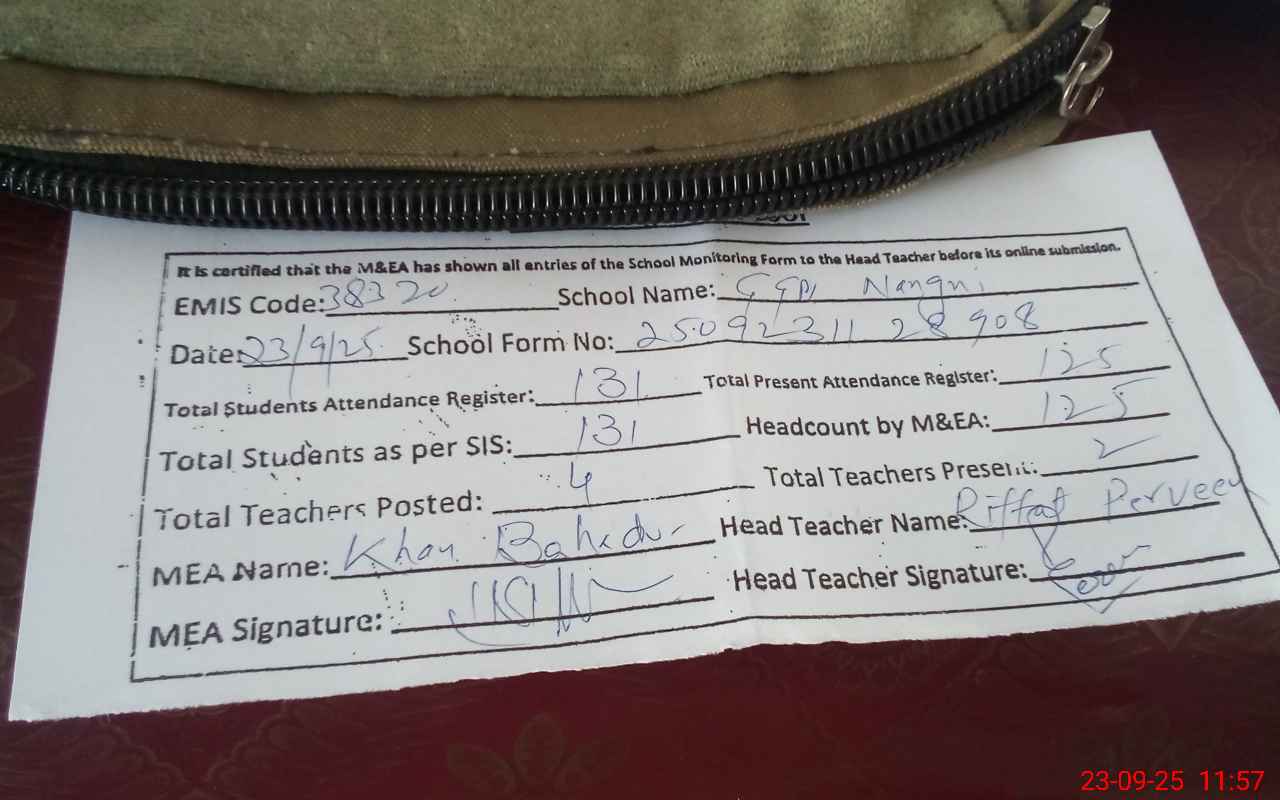 It is certified that the M&EA has shown all entries of the School Monitoring Form to the Head Teacher before its online submission.
EMIS Code: 38320 School Name: GGPS Nangni
Date: 23/9/25 School Form No: 25092311 28908
Total Students Attendance Register: 131 Total Present Attendance Register: 125
Total Students as per SIS: 131 Headcount by M&EA: 125
Total Teachers Posted: 4 Total Teachers Present: 2
MEA Name: Khan Bahadur Head Teacher Name: Riffat Perveen
MEA Signature: Head Teacher Signature:
23-09-25 11:57